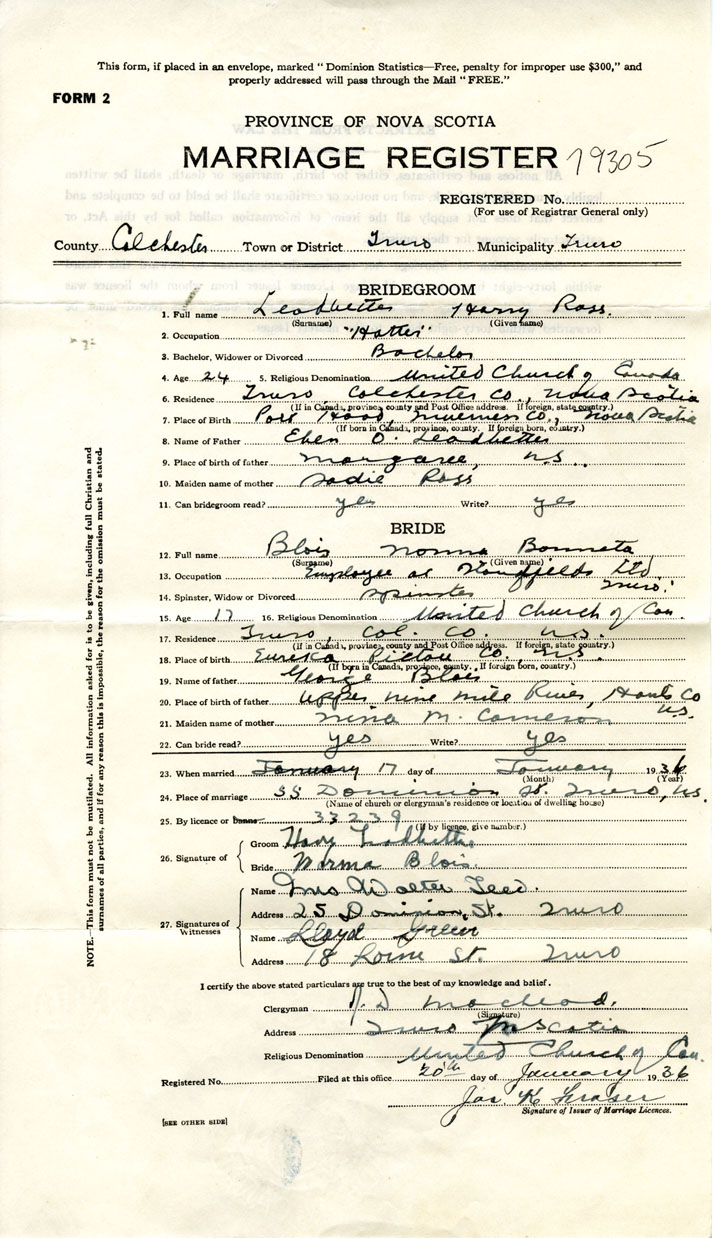 This form, if placed in an envelope, marked "Dominion Statistics—Free, penalty for improper use $300," and
properly addressed will pass through the Mail "FREE."
FORM 2
PROVINCE OF NOVA SCOTIA
MARRIAGE REGISTER 19305
REGISTERED No.
(For use of Registrar General only)
County Colchester Town or District Truro Municipality Truro
BRIDEGROOM
1. Full name Leadbetter Harry Ross.
(Surname) (Given name)
2. Occupation "Hatter"
3. Bachelor, Widower or Divorced Bachelor
4. Age 24 5. Religious Denomination United Church of Canada
6. Residence Truro, Colchester Co, Nova Scotia
(If in Canada, province, county and Post Office address. If foreign, state country.)
7. Place of Birth Port Hood, Inverness Co., Nova Scotia
(If born in Canada, province, county. If foreign born, country.)
8. Name of Father Eben O. Leadbetter
9. Place of birth of father Margaree, N.S.
10. Maiden name of mother Sadie Ross
11. Can bridegroom read? yes Write? yes
BRIDE
12. Full name Blois Norma Bonneta
(Surname) (Given name)
13. Occupation Employee at Stanfields Ltd
Truro.
14. Spinster, Widow or Divorced Spinster
15. Age 17 16. Religious Denomination United Church of Can.
17. Residence Truro, Col. Co. N.S.
(If in Canada, province, county and Post Office address. If foreign, state country.)
18. Place of birth Eureka Pictou Co., N.S.
(If born in Canada, province, county. If foreign born, country.)
19. Name of father George Blois
20. Place of birth of father Upper nine mile River, Hants Co
N.S.
21. Maiden name of mother Nina M. Cameron
22. Can bride read? yes Write? yes
23. When married January 17 day of January 1936
(Month) (Year)
24. Place of marriage 35 Dominion St. Truro, N.S.
(Name of church or clergyman's residence or location of dwelling house)
25. By licence or banns 33239
(If by licence, give number.)
26. Signature of
Groom Harry Leadbetter
Bride Norma Blois
27. Signatures of Witnesses
Name Mrs Walter Teed.
Address 25 Dominion St. Truro
Name Lloyd Green
Address 18 Lorne St. Truro
I certify the above stated particulars are true to the best of my knowledge and belief.
Clergyman J. D. MacLeod.
(Signature)
Address Truro N Scotia
Religious Denomination United Church of Can.
Registered No. Filed at this office 20th day of January 1936
Jas K Fraser
Signature of Issuer of Marriage Licences.
[SEE OTHER SIDE]
NOTE.—This form must not be mutilated. All information asked for is to be given, including full Christian and
surnames of all parties, and if for any reason this is impossible, the reason for the omission must be stated.